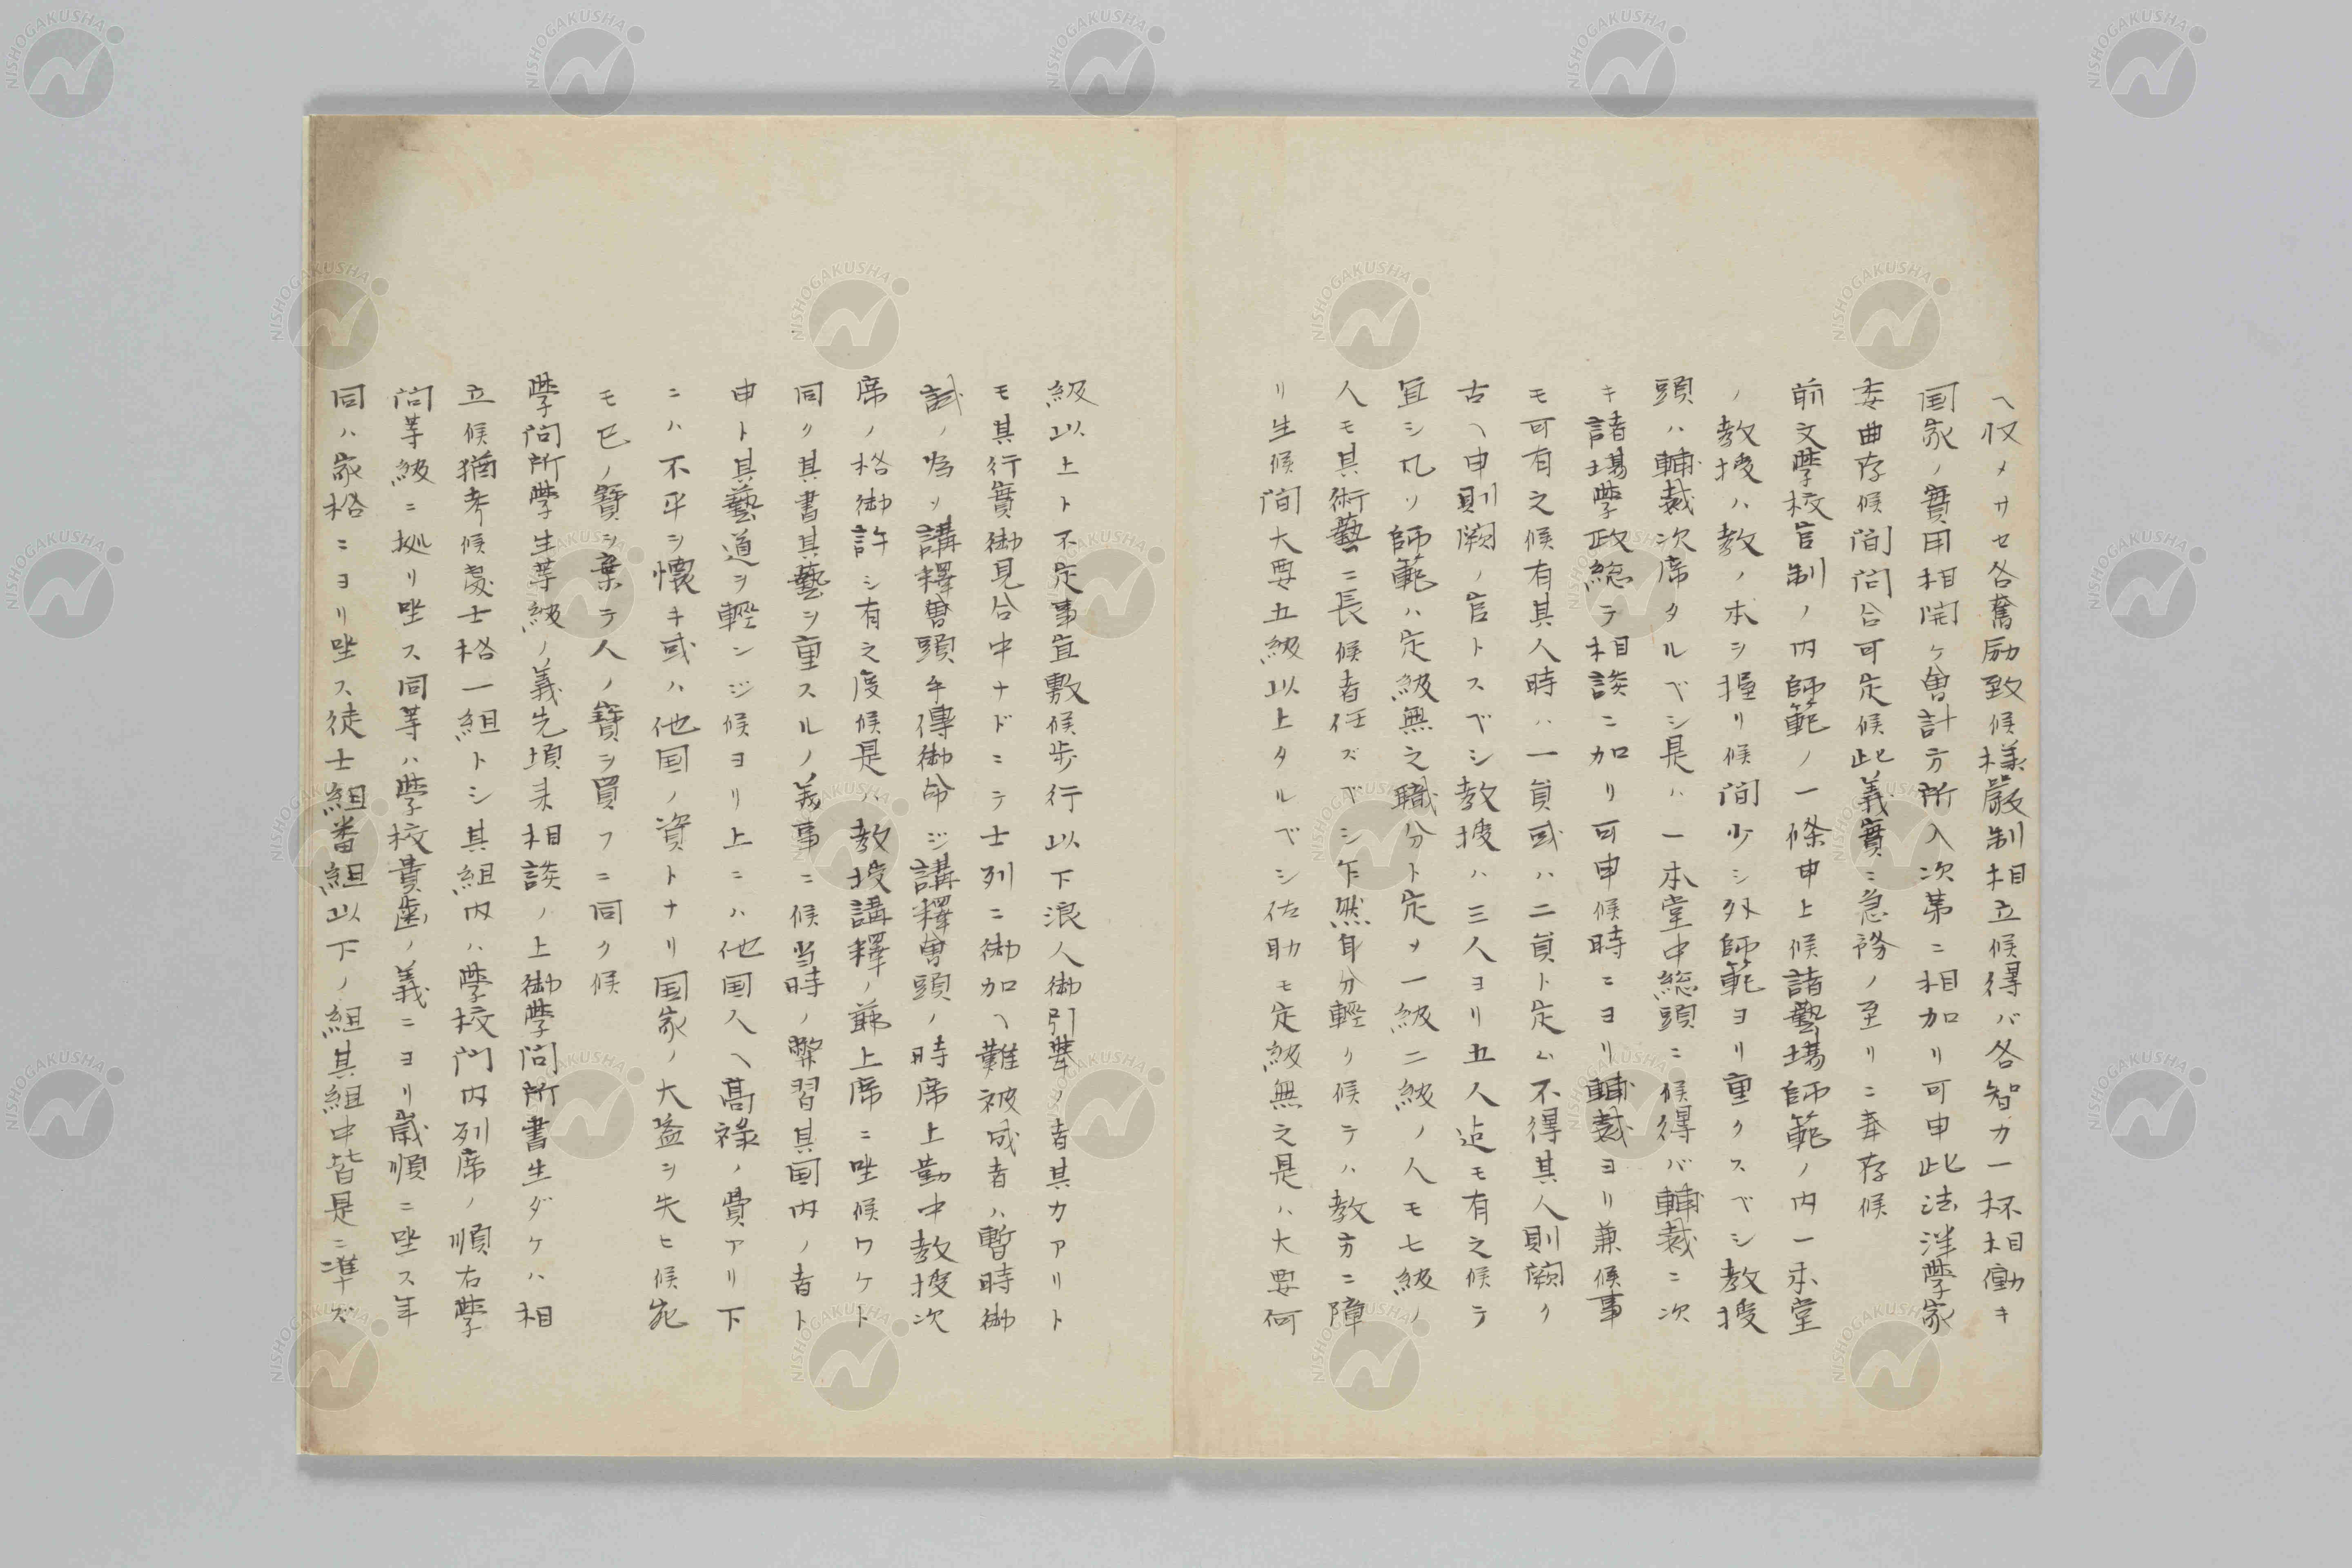 ヘ収メサセ各奮励致候様嚴制相立候得バ各智力一杯相働キ
国家ノ實用相開ケ會計方所入次第ニ相加リ可申此法洋學家
委曲存候間問合可定候此義實ニ急務ノ至リニ奉存候
前文學校官制ノ内師範ノ一條申上候諸藝場師範ノ内一本堂
ノ教授ハ教ノ本ヲ握リ候間少シ外師範ヨリ重クスベシ教授
頭ハ輔裁次席タルベシ是ハ一本堂中総頭ニ候得バ輔裁ニ次
キ諸場學政総テ相談ニ加リ可申候時ニヨリ輔裁ヨリ兼候事
モ可有之候有其人時ハ一員或ハ二員ト定ム不得其人則闕ク
古ヘ申則闕ノ官トスベシ教授ハ三人ヨリ五人迠モ有之候テ
宜シ凡ソ師範ハ定級無之職分ト定メ一級二級ノ人モ七級ノ
人モ其術藝ニ長候者任ズベシ乍然身分輕ク候テハ教方ニ障
リ生候間大要五級以上タルベシ佐助モ定級無之是ハ大要何
級以上ト不定事宜敷候歩行以下浪人御引擧ノ者其力アリト
モ其行實御見合中ナドニテ士列ニ御加ヘ難被成者ハ暫時御
試ノ為ソ講釋會頭手傳御命ジ講釋會頭ノ時席上勤中教授次
席ノ格御許シ有之度候是ハ教授講釋ノ節上席ニ坐候ワケト
同ク其書其藝ヲ重スルノ義事ニ候当時ノ弊習其国内ノ者ト
申ト其藝道ヲ輕ンジ候ヨリ上ニハ他国人ヘ高祿ノ費アリ下
ニハ不平ヲ懷キ或ハ他国ノ資トナリ国家ノ大益ヲ失ヒ候宛
モ己ノ寶ヲ棄テ人ノ寶ヲ買フニ同ク候
學問所學生等級ノ義先頃来相談ノ上御學問所書生ダケハ相
立候猶考候處士格一組トシ其組内ハ學校門内列席ノ順右學
問等級ニ拠リ坐ス同等ハ學校貴歯ノ義ニヨリ歳順ニ坐ス年
同ハ家格ニヨリ坐ス徒士組番組以下ノ組其組中皆是ニ準ズ
NISHOGAKUSHA